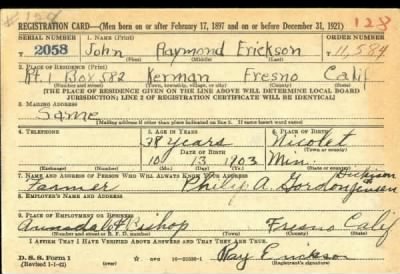 #124
REGISTRATION CARD—(Men born on or after February 17, 1897 and on or before December 31, 1921) 128
SERIAL NUMBER 1. NAME (Print) ORDER NUMBER
2058 John Raymond Erickson 11,584
(First) (Middle) (Last)
2. PLACE OF RESIDENCE (Print)
Rt. 1 Box 582 Kerman Fresno Calif
(Number and street) (Town, township, village, or city) (County) (State)
[THE PLACE OF RESIDENCE GIVEN ON THE LINE ABOVE WILL DETERMINE LOCAL BOARD
JURISDICTION; LINE 2 OF REGISTRATION CERTIFICATE WILL BE IDENTICAL]
3. MAILING ADDRESS
Same
[Mailing address if other than place indicated on line 2. If same insert word same]
4. TELEPHONE 5. AGE IN YEARS 6. PLACE OF BIRTH
38 years Nicolet
DATE OF BIRTH (Town or county)
10 13 1903 Minn.
(Exchange) (Number) (Mo.) (Day) (Yr.) (State or country)
7. NAME AND ADDRESS OF PERSON WHO WILL ALWAYS KNOW YOUR ADDRESS
Farmer Philip A. Gordon Jensen
8. EMPLOYER'S NAME AND ADDRESS
9. PLACE OF EMPLOYMENT OR BUSINESS
Annadale & Bishop Fresno Calif
(Number and street or R. F. D. number) (Town) (County) (State)
I AFFIRM THAT I HAVE VERIFIED ABOVE ANSWERS AND THAT THEY ARE TRUE.
D. S. S. Form 1
(Revised 1-1-42) (over) 16—21630-1 Ray Erickson
(Registrant's signature)